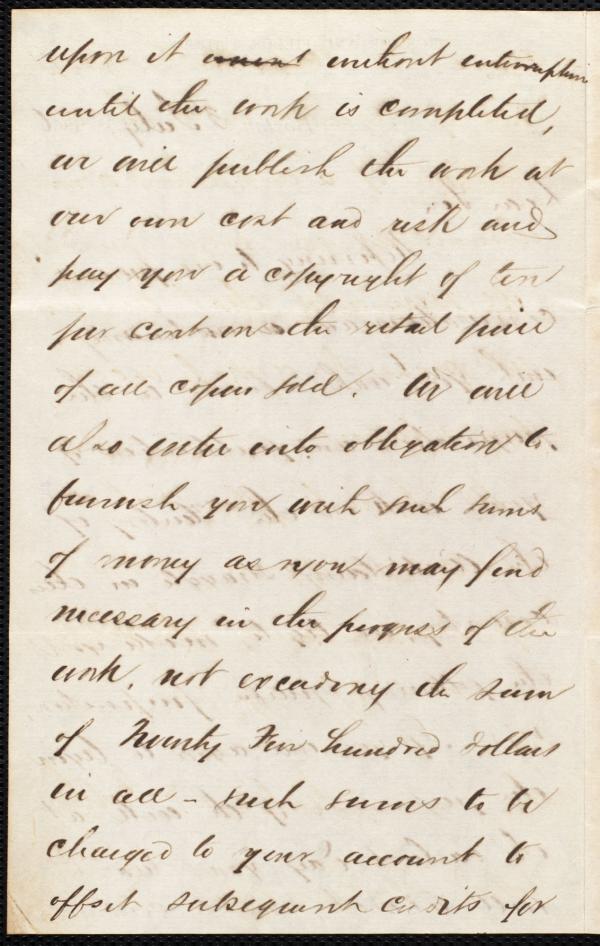 upon it without interruption
until the work is completed,
we will publish the work at
our own cost and risk and
pay you a copyright of ten
per cent on the retail price
of all copies sold. We will
also enter into obligation to
furnish you with such sums
of money as you may find
necessary in the progress of the
work, not exceeding the sum
of Twenty Five hundred dollars
in all - such sums to be
charged to your account to
offset subsequent credits for